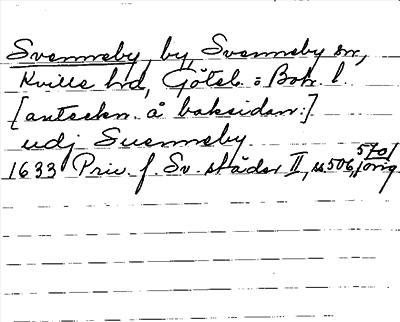 Svenneby, by, Svenneby sn,
Kville hd, Göteb. o Boh. l.
[anteckn. å baksidan:]
udj Suenneby
1633 Priv. f. Sv. städer II, s. 506, 570/ orig